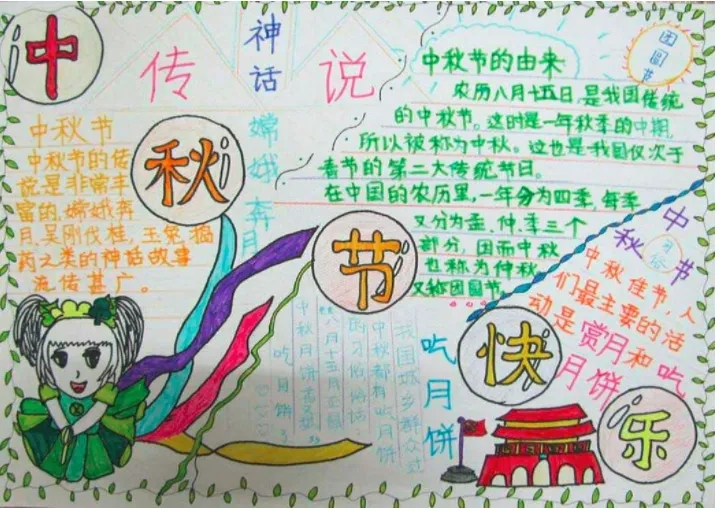 中
秋
节
快
乐
神话
传 说
嫦娥奔月
中秋节
中秋节的传
说是非常丰
富的,嫦娥奔
月,吴刚伐桂,玉兔捣
药之类的神话故事
流传甚广。
团圆节
中秋节的由来
农历八月十五日,是我国传统
的中秋节。这时是一年秋季的中期,
所以被称为中秋。这也是我国仅次于
春节的第二大传统节日。
在中国的农历里,一年分为四季,每季
又分为孟、仲、季三个
部分,因而中秋
也称为仲秋
又称团圆节
中秋节
习俗
中秋佳节,人
们最主要的活
动是赏月和吃
月饼
吃月饼
我国城乡群众过
中秋都有吃月饼
的习俗俗话
八月十五月正圆
中秋月饼香又甜
吃月饼